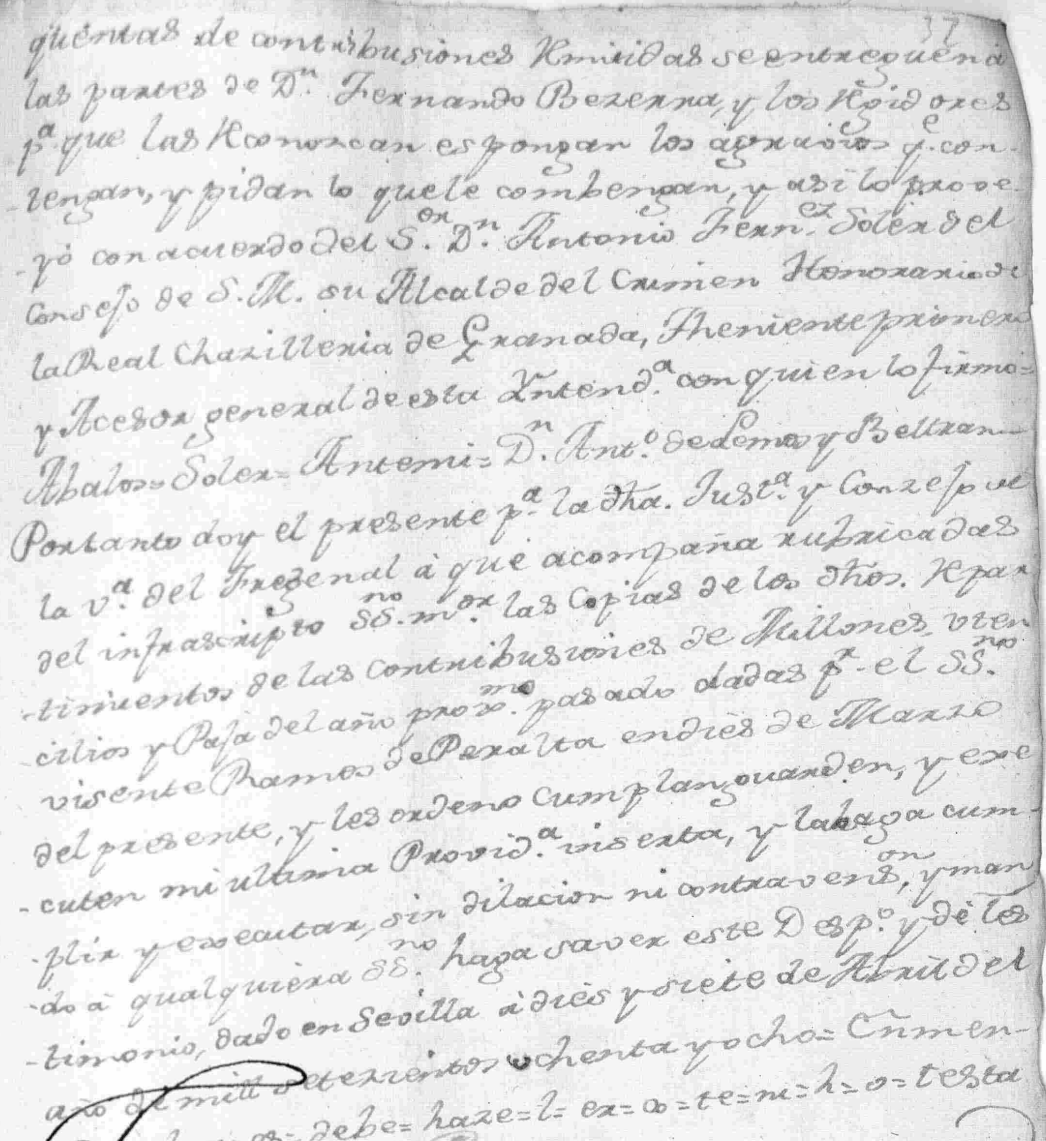 37
quentas de contribusiones Rmitidas se entreguen a
las partes de Dn. Fernando Bezerra, y los Rgidores
pa. que las Rconoscan espongan los agravios qe. con-
-tengan, y pidan lo que le combengan, y asi lo prove-
-yó con acuerdo del Sor. Dn. Antonio Fernez. Soler del
Consejo de S. M. su Alcalde del Crimen Honorario de
la Real Chazilleria de Granada, Theniente primero
y Acesor general de esta Yntenda. con quien lo firmó=
Abalos= Soler= Antemi= Dn. Anto. de Lemos y Beltran
Portanto doy el presente pa. la dha. Justa. y Conzejo de
la va. del Fregenal á que acompaña rubricadas
del infrascripto SSno. mor. las Copias de los dhos. Rpar
-timientos de las contribusiones de Millones, Uten
-cilios y Paja del año proxmo. pasado dadas pr. el SSno.
visente Ramos de Peralta en diès de Marzo
del presente, y les ordeno cumplan, guarden, y exe
-cuten mi ultima Provida. inserta, y la haga cum-
-plir y executar, sin dilacion ni contravenson, y man
-do à qualquiera SSno. haga saver este Despo. y dè tes
-timonio, dado en Sevilla à diès y siete de Abril del
año de mill setezientos ochenta y ocho= Enmen-
debe= haze= l= ex= = te= m= h= o= testa